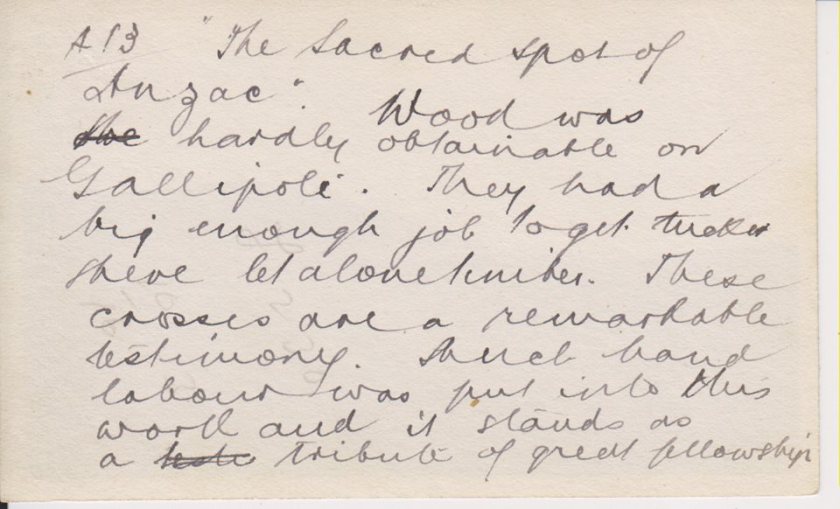 A13 "The Sacred spot of
Anzac".
Wood was
She hardly obtainable on
Gallipoli. They had a
big enough job to get tucker
there let alone timber. These
crosses are a remarkable
testimony. Much hand
labour was put into this
work and it stands as
a testi tribute of great fellowship